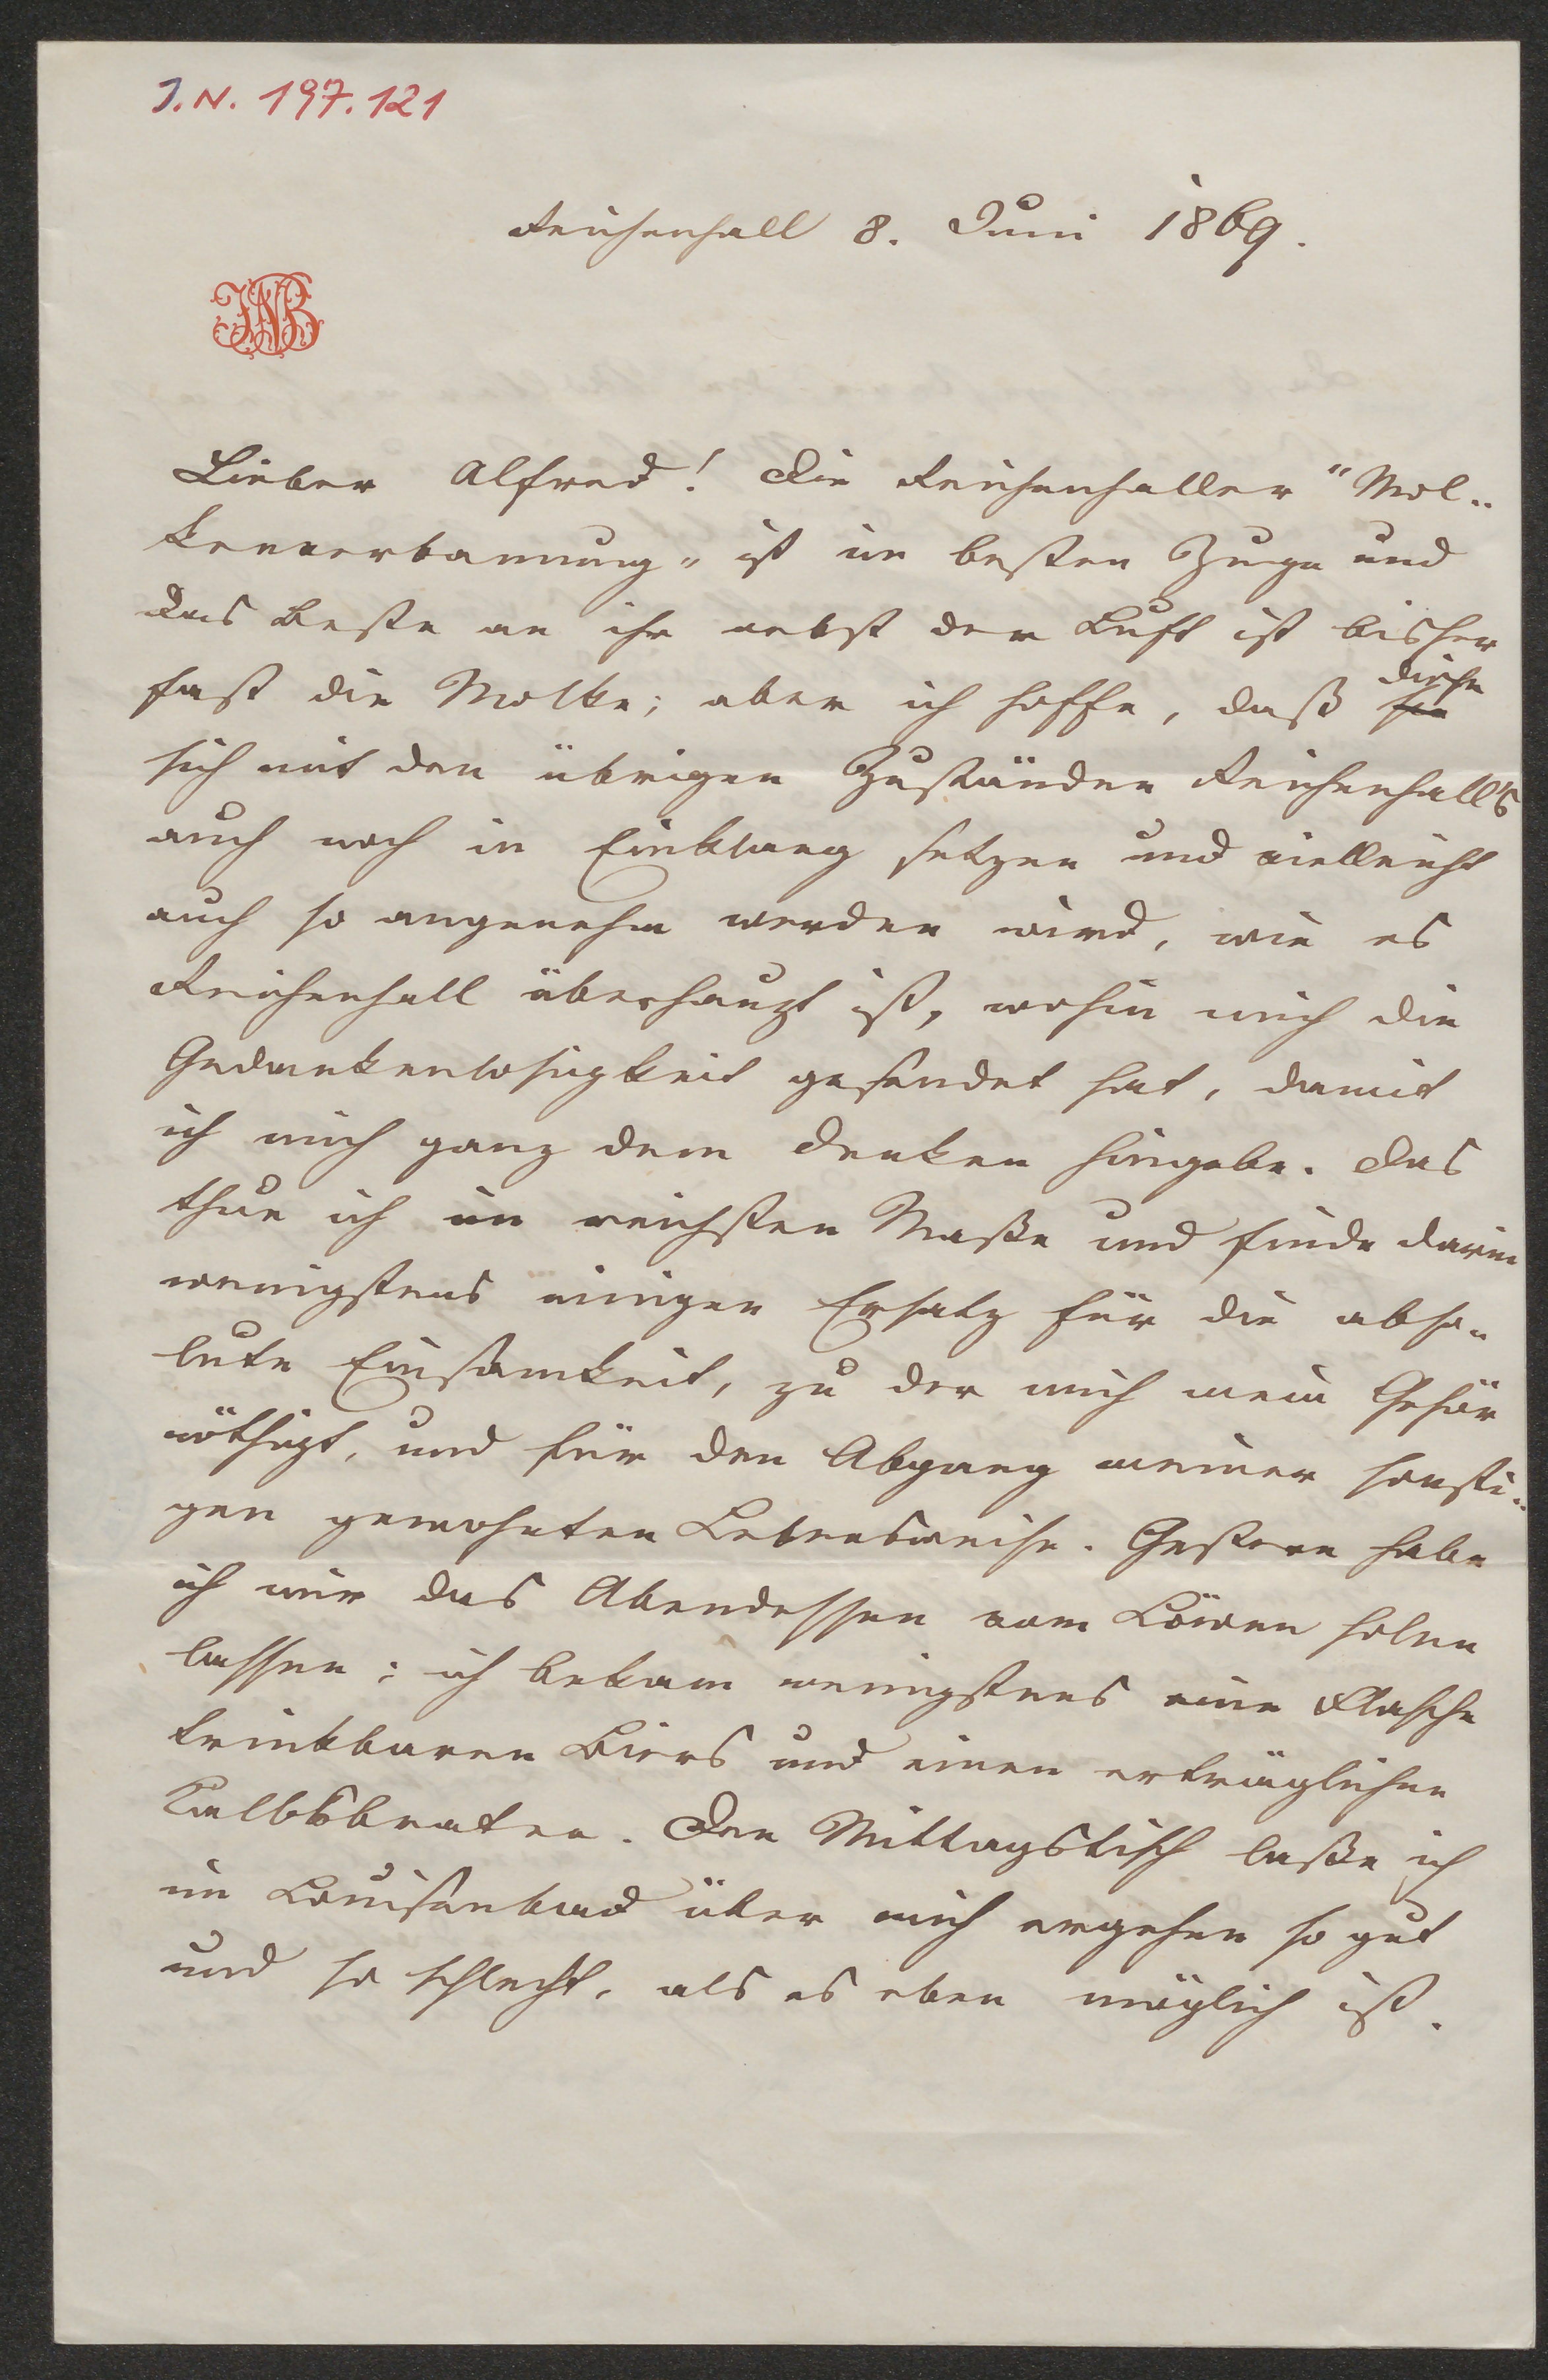 I.N. 197.121
Reichenhall 8. Juni 1869.
JNB
Lieber Alfred! Die Reichenhaller "Mol-
kenverbannung" ist im besten Zuge und
das Beste an ihr nebst der Luft ist bisher
fast die Molke; aber ich hoffe, daß sie diese
sich mit den übrigen Zuständen Reichenhall's
auch noch in Einklang setzen und vielleicht
auch so angenehm werden wird, wie es
Reichenhall überhaupt ist, wohin mich die
Gedankenlosigkeit gesendet hat, damit
ich mich ganz dem Denken hingebe. Das
thue ich im reichsten Maße und finde darin
wenigstens einigen Ersatz für die abso-
lute Einsamkeit, zu der mich mein Gehör
nöthigt, und für den Abgang meiner sonsti-
gen gewohnten Lebensweise. Gestern habe
ich mir das Abendessen vom Löwen holen
lassen: ich bekam wenigstens eine Flasche
trinkbaren Biers und einen erträglichen
Kalbsbraten. Den Mittagstisch laße ich
im Louisenbad über mich ergehen so gut
und so schlecht, als es eben möglich ist.